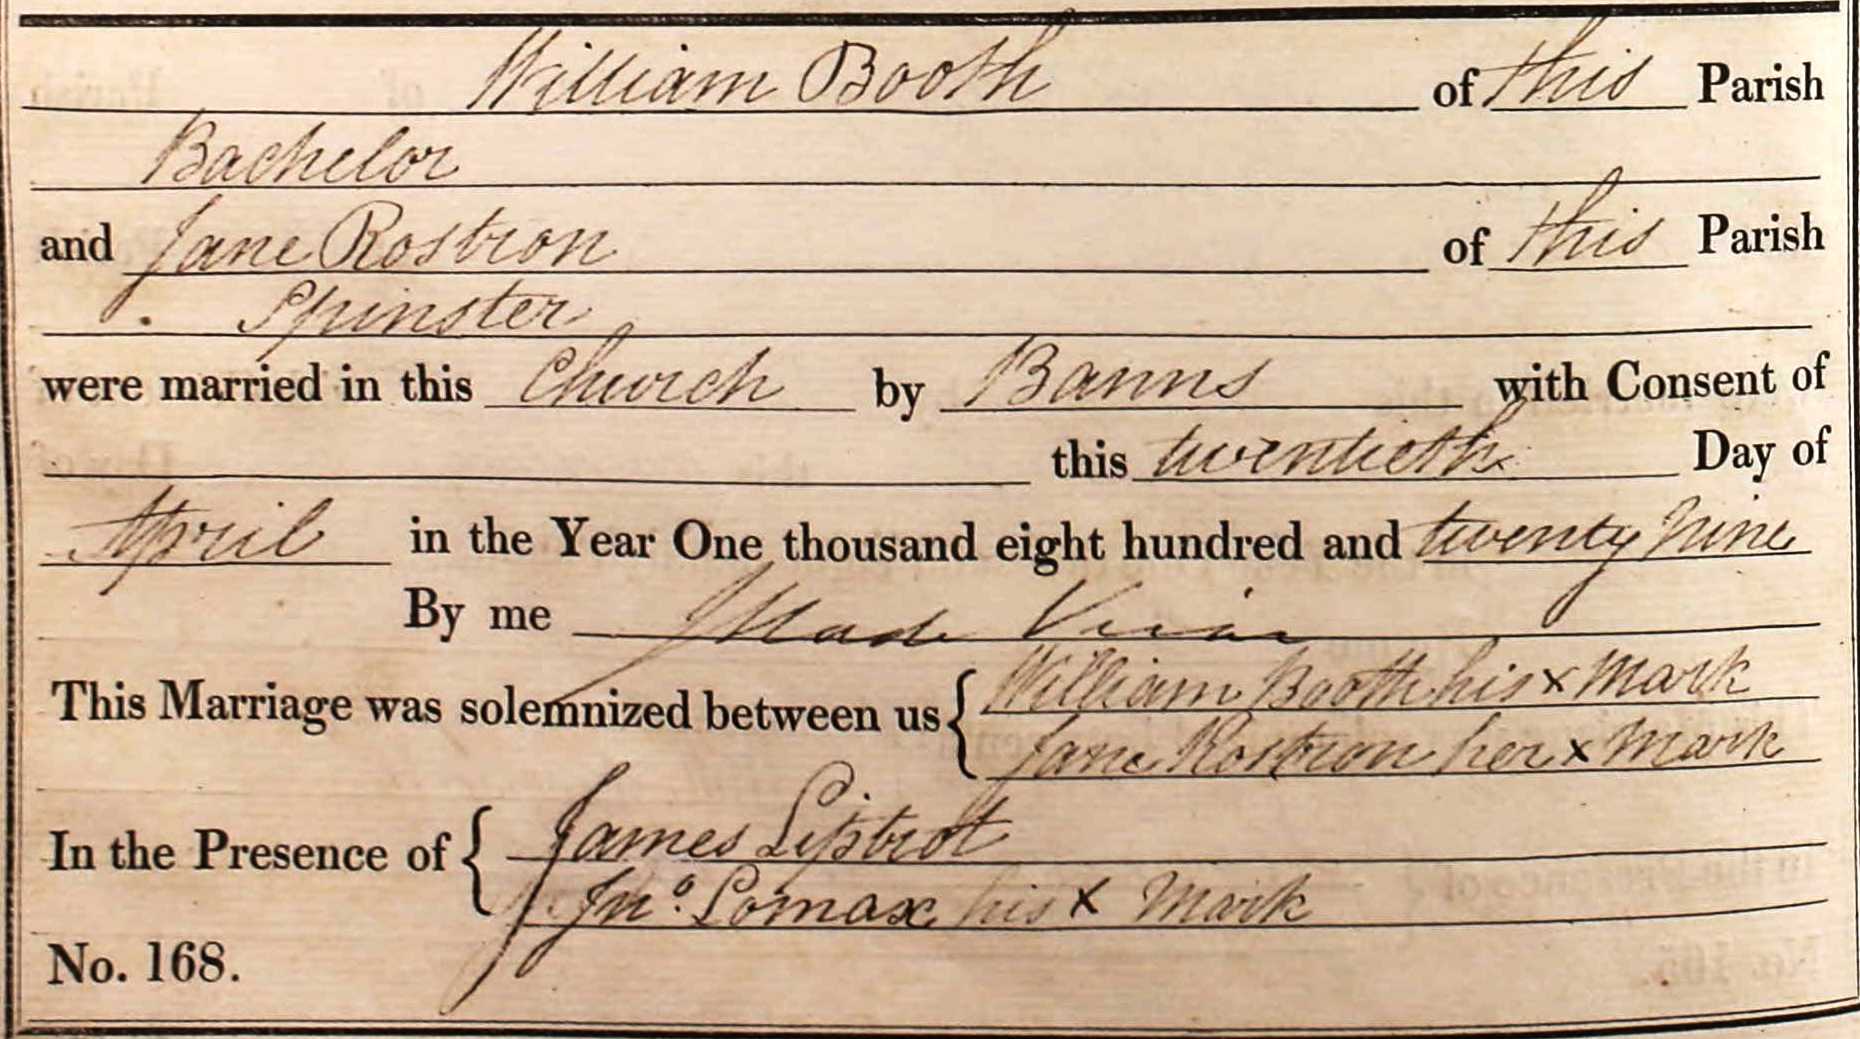 William Booth of this Parish
Bachelor
and Jane Rostron of this Parish
Spinster
were married in this Church by Banns with Consent of
this twentieth Day of
April in the Year One thousand eight hundred and twenty Nine
By me J Slade Vicar
This Marriage was solemnized between us { William Booth his x Mark
Jane Rostron her x Mark
In the Presence of { James Liptrot
Jno. Lomax his X Mark
No. 168.